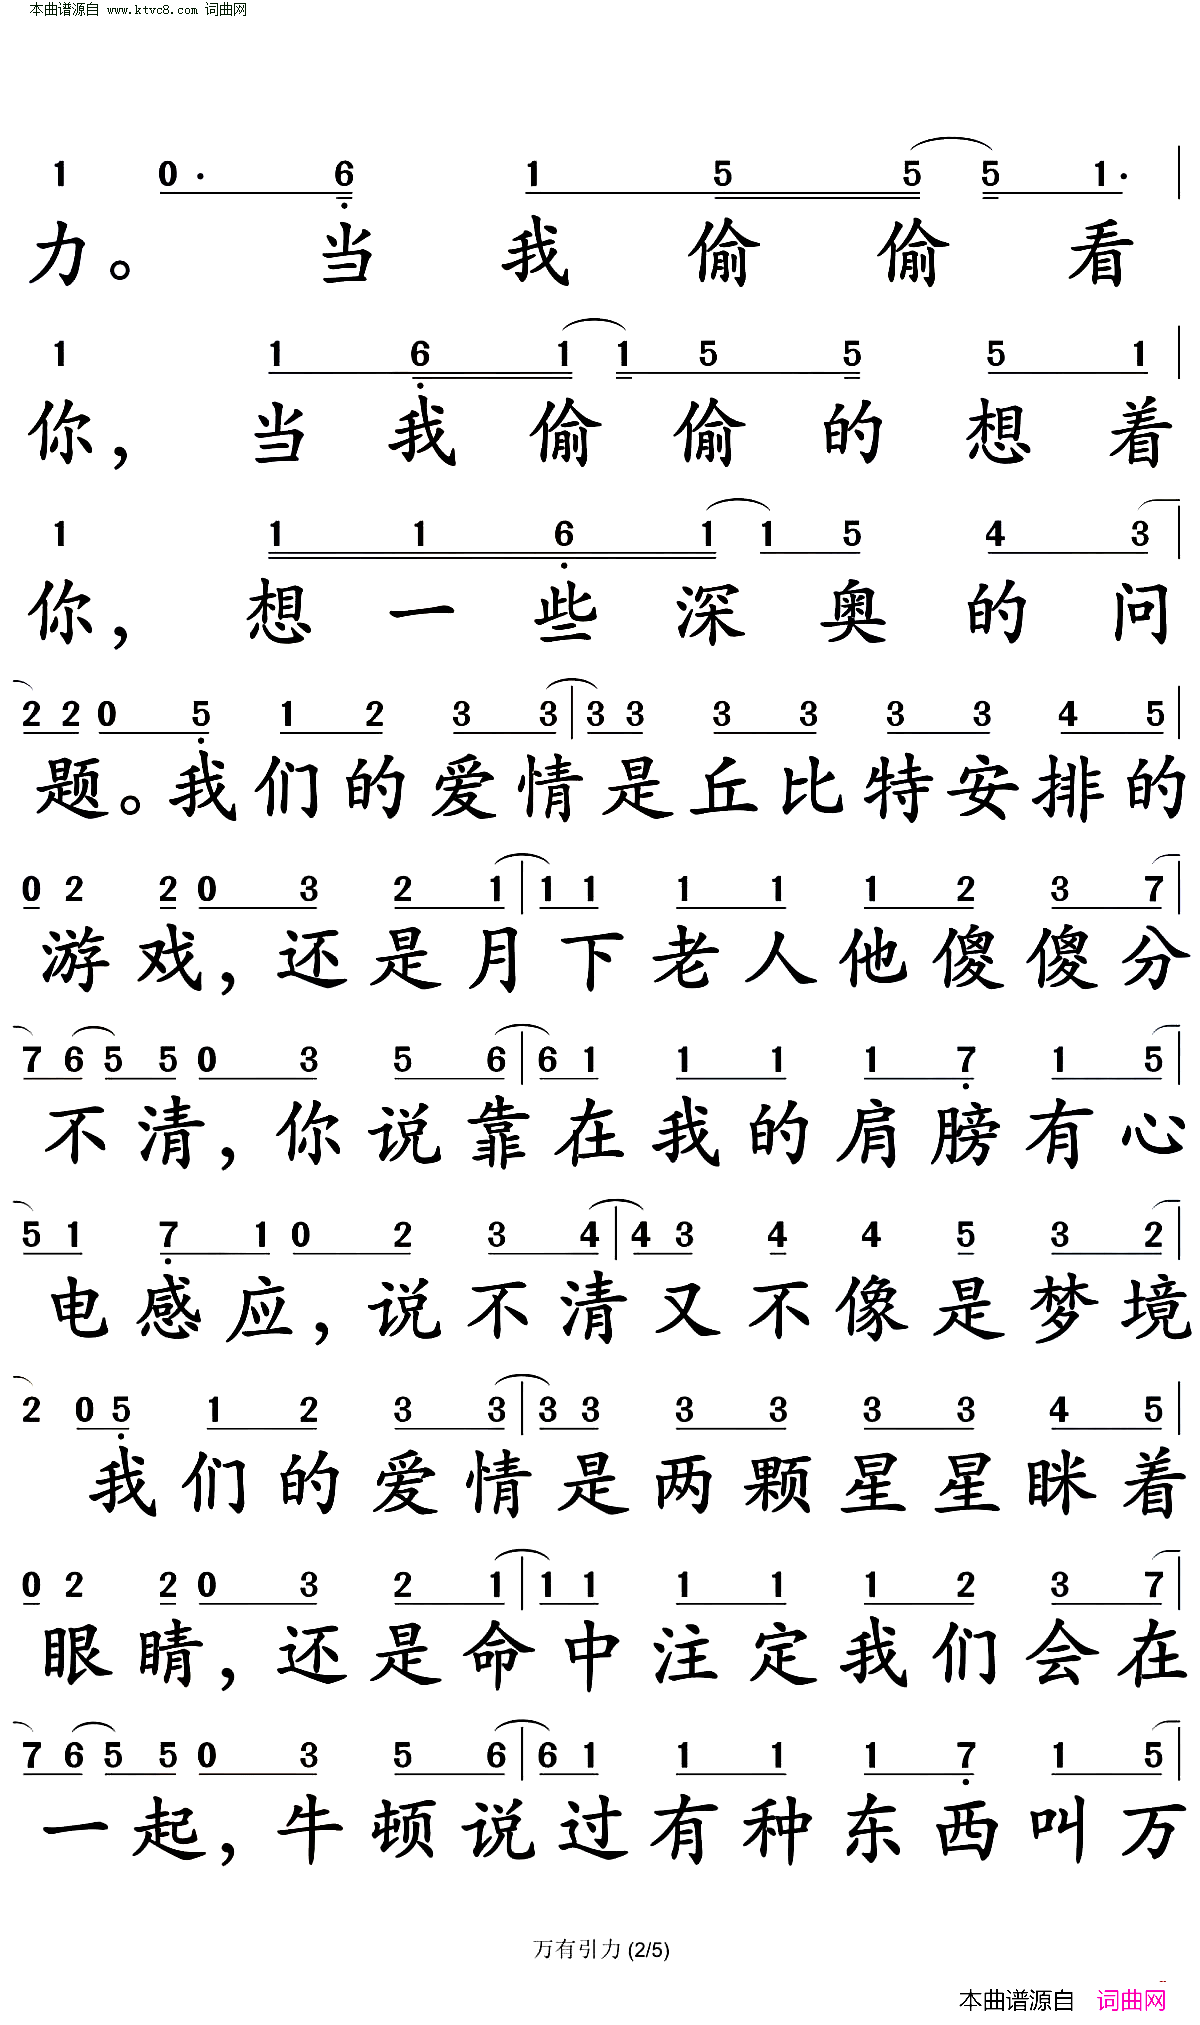 本曲谱源自 www.ktvc8.com 词曲网
1 0· 6 1 5 5 5 1·
力。 当 我 偷 偷 看
1 1 6 1 1 5 5 5 1
你， 当 我 偷 偷 的 想 着
1 1 1 6 1 1 5 4 3
你， 想 一 些 深 奥 的 问
2 2 0 5 1 2 3 3 3 3 3 3 3 3 4 5
题。我 们 的 爱 情 是 丘 比 特 安 排 的
0 2 2 0 3 2 1 1 1 1 1 1 2 3 7
游 戏， 还 是 月 下 老 人 他 傻 傻 分
7 6 5 5 0 3 5 6 6 1 1 1 1 7 1 5
不 清， 你 说 靠 在 我 的 肩 膀 有 心
5 1 7 1 0 2 3 4 4 3 4 4 5 3 2
电 感 应， 说 不 清 又 不 像 是 梦 境
2 0 5 1 2 3 3 3 3 3 3 3 3 4 5
我 们 的 爱 情 是 两 颗 星 星 眯 着
0 2 2 0 3 2 1 1 1 1 1 1 2 3 7
眼 睛， 还 是 命 中 注 定 我 们 会 在
7 6 5 5 0 3 5 6 6 1 1 1 1 7 1 5
一 起， 牛 顿 说 过 有 种 东 西 叫 万
万有引力 (2/5)
本曲谱源自 词曲网